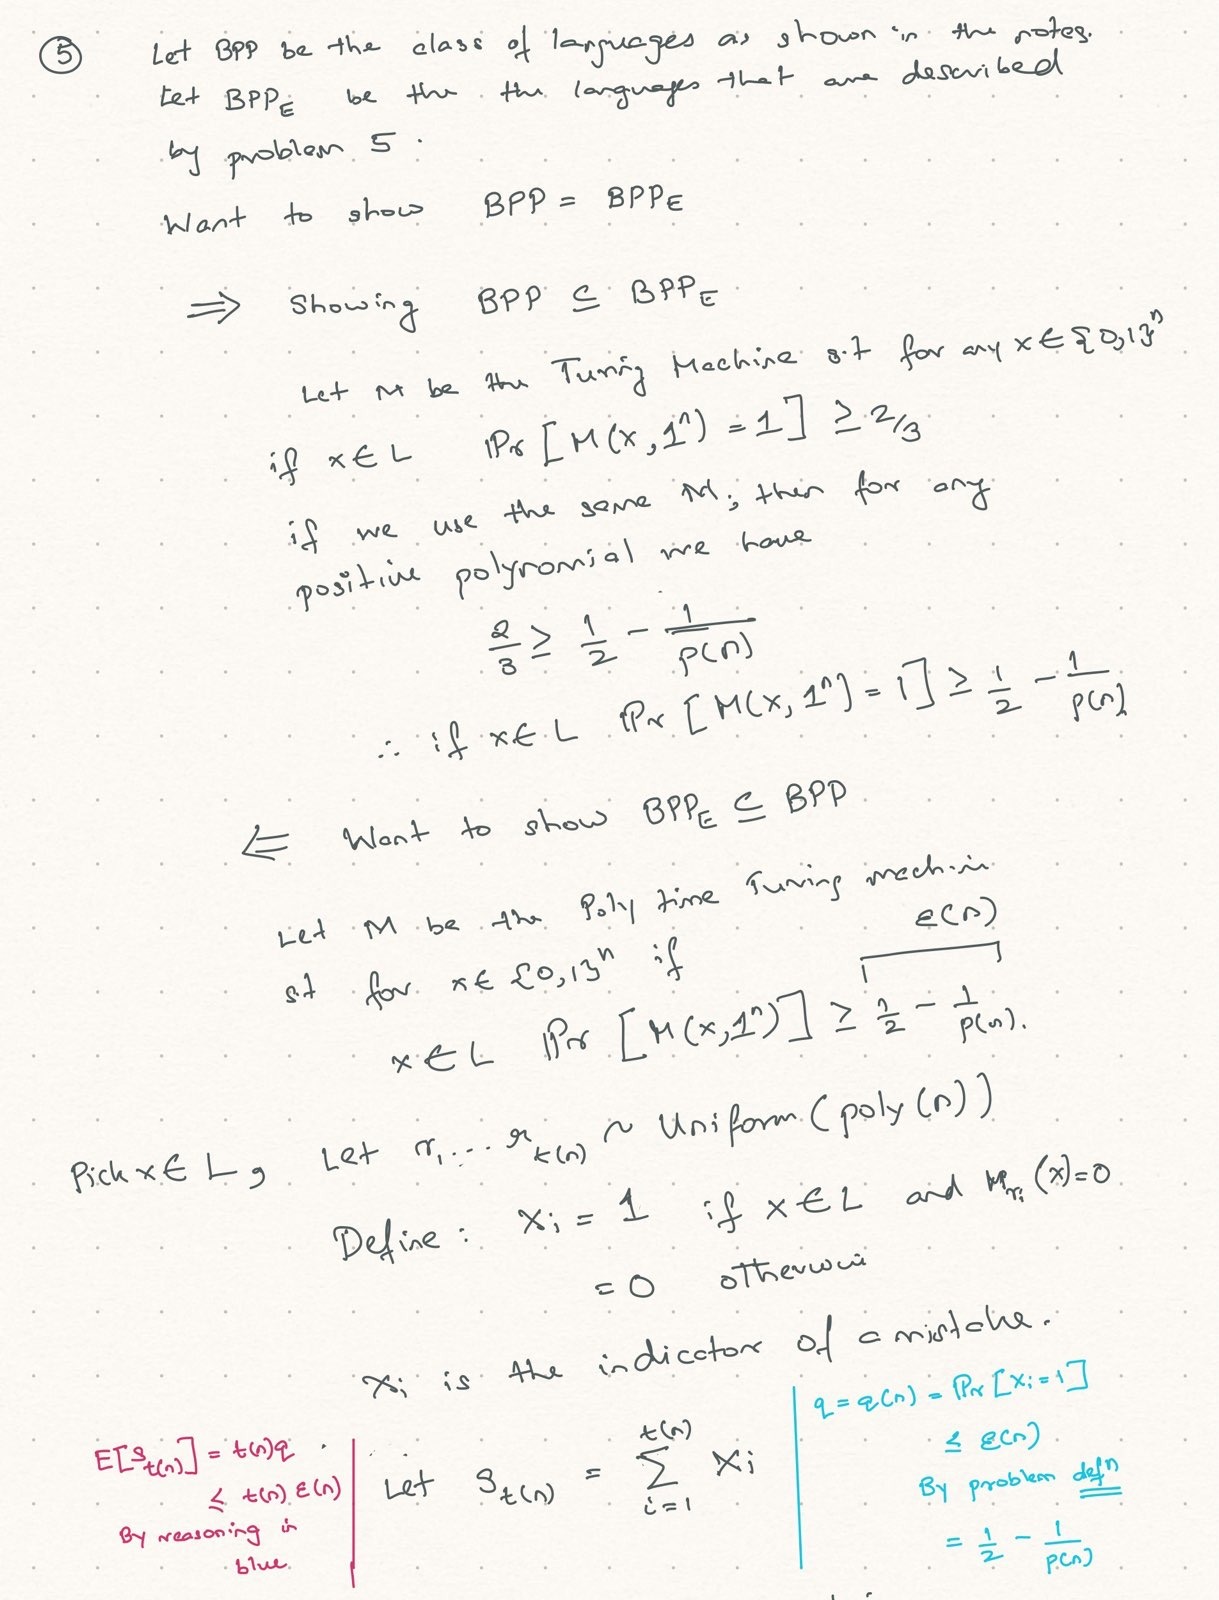 5 Let BPP be the class of languages as shown in the notes.
Let BPP_E be the the languages that are described
by problem 5.
Want to show BPP = BPP_E
⇒ Showing BPP ⊆ BPP_E
Let M be the Turing Machine s.t for any x ∈ {0,1}^n
if x ∈ L Pr [M(x,1^n) = 1] ≥ 2/3
if we use the same M, then for any
positive polynomial we have
2/3 ≥ 1/2 - 1/p(n)
∴ if x ∈ L Pr [M(x,1^n) = 1] ≥ 1/2 - 1/p(n)
⇐ Want to show BPP_E ⊆ BPP
Let M be the Poly time Turing machine
ε(n)
st for x ∈ {0,1}^n if
x ∈ L Pr [M(x,1^n)] ≥ 1/2 - 1/p(n).
Pick x ∈ L, Let r_1 ... r_t(n) ~ Uniform(poly(n))
Define: X_i = 1 if x ∈ L and M_{r_i}(x)=0
= 0 otherwise
X_i is the indicator of a mistake.
E[S_t(n)] = t(n)q
≤ t(n) ε(n)
By reasoning in
blue
Let S_t(n) = Σ_{i=1}^{t(n)} X_i
q = q(n) = Pr [X_i = 1]
≤ ε(n)
By problem defn
= 1/2 - 1/p(n)